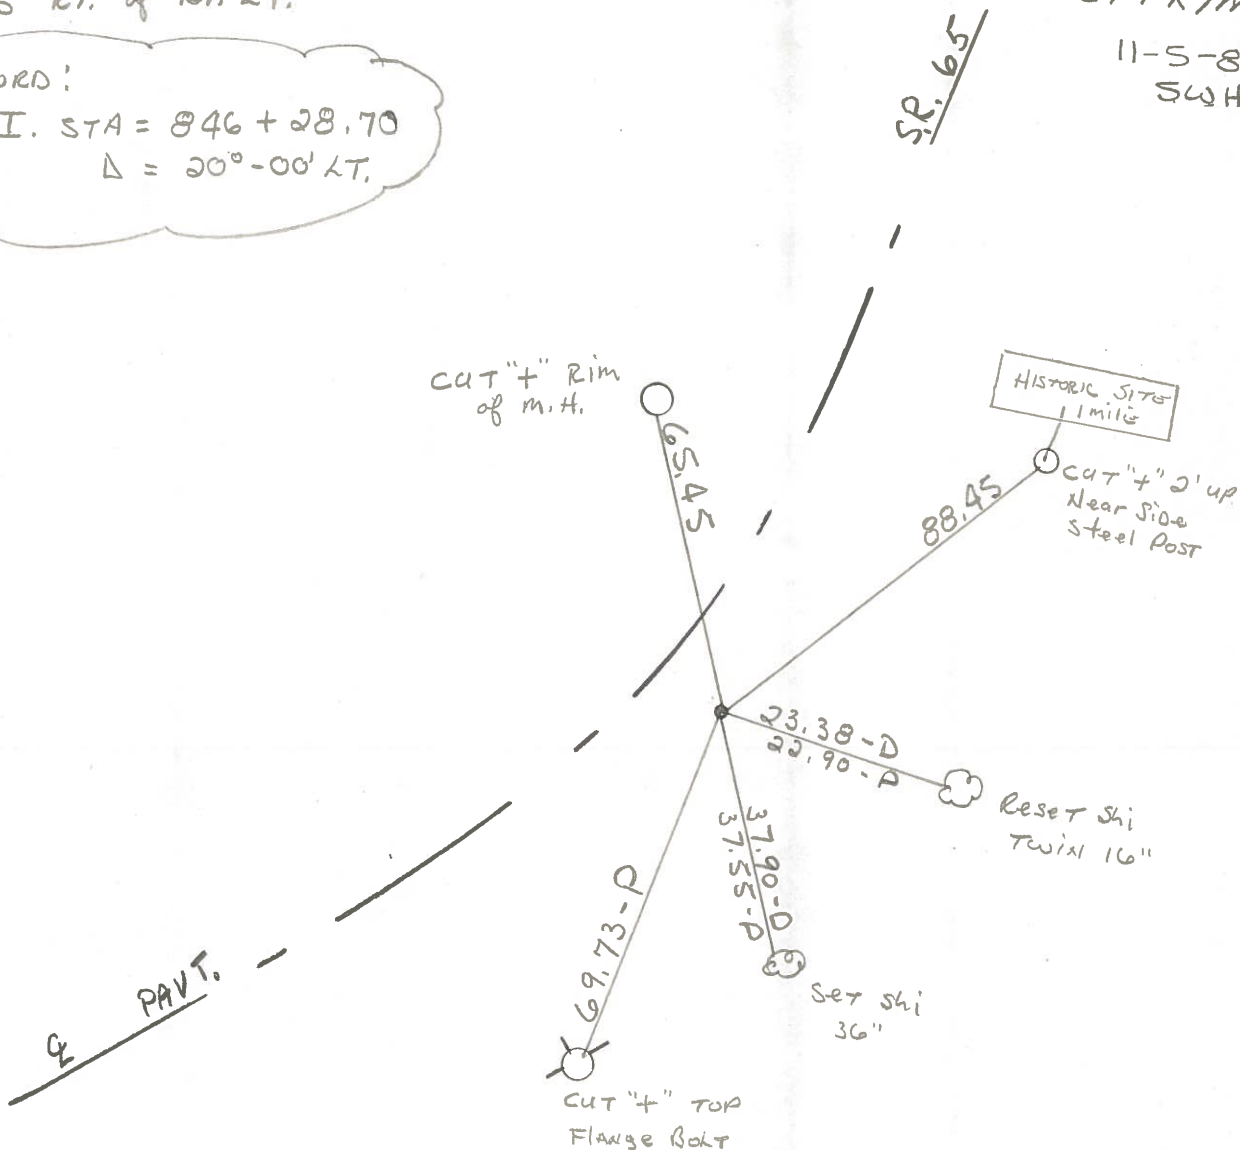 S.R. 65
11-5-8
SWH
ORD:
I. STA = 846 + 28.70
Δ = 20°-00' LT.
CUT "+" Rim
of M.H.
65.45
HISTORIC SITE
1 mile
CUT "+" 2' up
Near Side
Steel Post
88.45
23.38-D
22.90-P
Reset Shi
Twin 16"
37.90-D
37.55-P
Set Shi
36"
69.73-P
CUT "+" TOP
Flange Bolt
℄ PAVT.